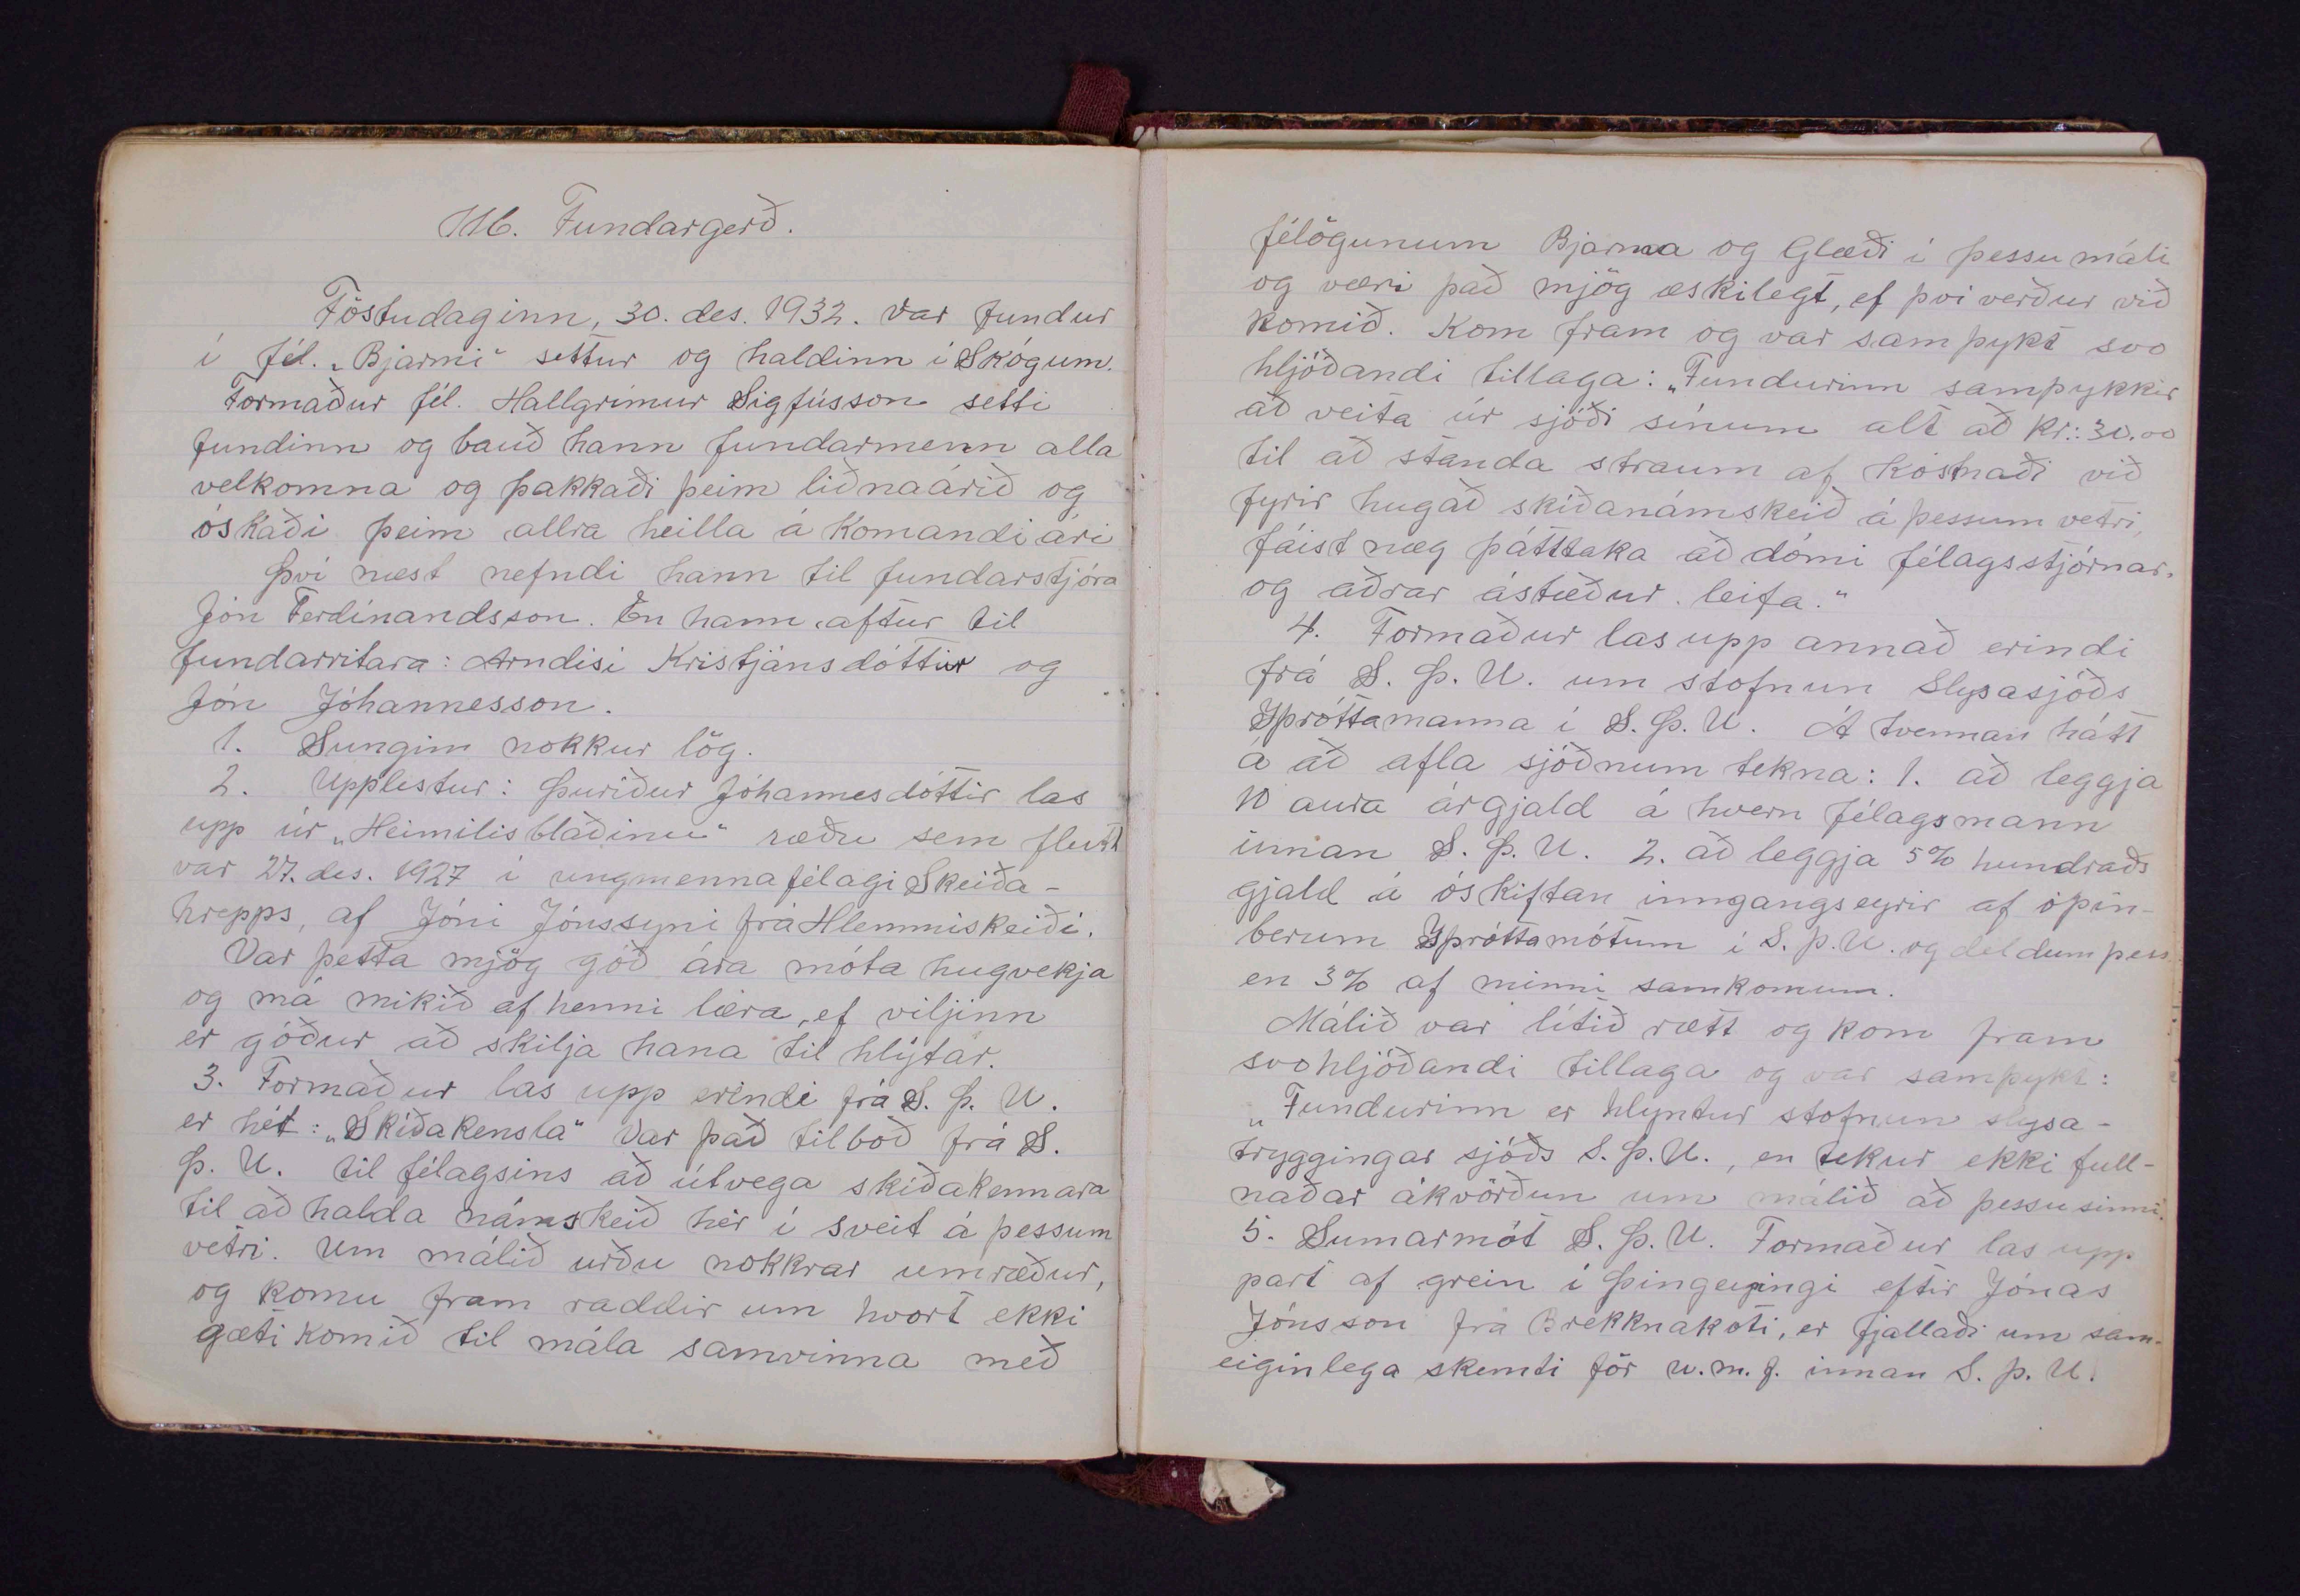 116. Fundargerð.
Föstudaginn, 30. des. 1932. var fundur
í fél. „Bjarmi" settur og haldinn í Skógum.
Formaður fél. Hallgrímur Sigfússon setti
fundinn og bauð hann fundarmenn alla
velkomna og þakkaði þeim liðnaárið og
óskaði þeim allra heilla á komandi ári
Því næst nefndi hann til fundarstjóra
Jón Ferdínandsson. En hann aftur til
fundarritara: Arndísi Kristjánsdóttir og
Jón Jóhannesson.
1. Sungin nokkur lög.
2. Upplestur: Þuríður Jóhannesdóttir las
upp úr „Heimilisblaðinu" ræðu sem flutt
var 27. des. 1927 í ungmennafélagi Skeiða-
hrepps, af Jóni Jónssyni frá Hlemmiskeiði.
Var þetta mjög góð ára móta hugvekja
og má mikið af henni læra, ef viljinn
er góður að skilja hana til hlýtar.
3. Formaður las upp erindi frá S. Þ. U.
er hét: „Skíðakensla" Var það tilboð frá S.
Þ. U. til félagsins að útvega skíðakennara
til að halda námskeið hér í sveit á þessum
vetri. Um málið urðu nokkrar umræður,
og komu fram raddir um hvort ekki
gæti komið til mála samvinna með
félögunum Bjarma og Glæði í þessu máli
og væri það mjög æskilegt, ef því verður við
komið. Kom fram og var samþykt svo
hljóðandi tillaga: „Fundurinn samþykkir
að veita úr sjóði sínum alt að kr.: 30.00
til að standa straum af kostnaði við
fyrir hugað skíðanámskeið á þessum vetri,
fáist næg þátttaka að dómi félagsstjórnar.
og aðrar ástæður leifa."
4. Formaður las upp annað erindi
frá S. Þ. U. um stofnun Slysasjóðs
Íþróttamanna í S. Þ. U. Á tvennan hátt
á að afla sjóðnum tekna: 1. að leggja
10 aura árgjald á hvern félagsmann
innan S. Þ. U. 2. að leggja 5% hundraðs
gjald á óskiftan inngangseyrir af opin-
berum Íþróttamótum í S. Þ. U. og deldum þess
en 3% af minni samkomum.
Málið var lítið rætt og kom fram
svohljóðandi tillaga og var samþykt:
„Fundurinn er hlyntur stofnun slysa-
tryggingar sjóðs S. Þ. U., en tekur ekki full-
naðar ákvörðun um málið að þessu sinni.
5. Sumarmót S. Þ. U. Formaður las upp
part af grein í Þingeyingi eftir Jónas
Jónsson frá Brekknakoti, er fjallaði um sam-
eiginlega skemti för u. m. f. innan S. Þ. U.